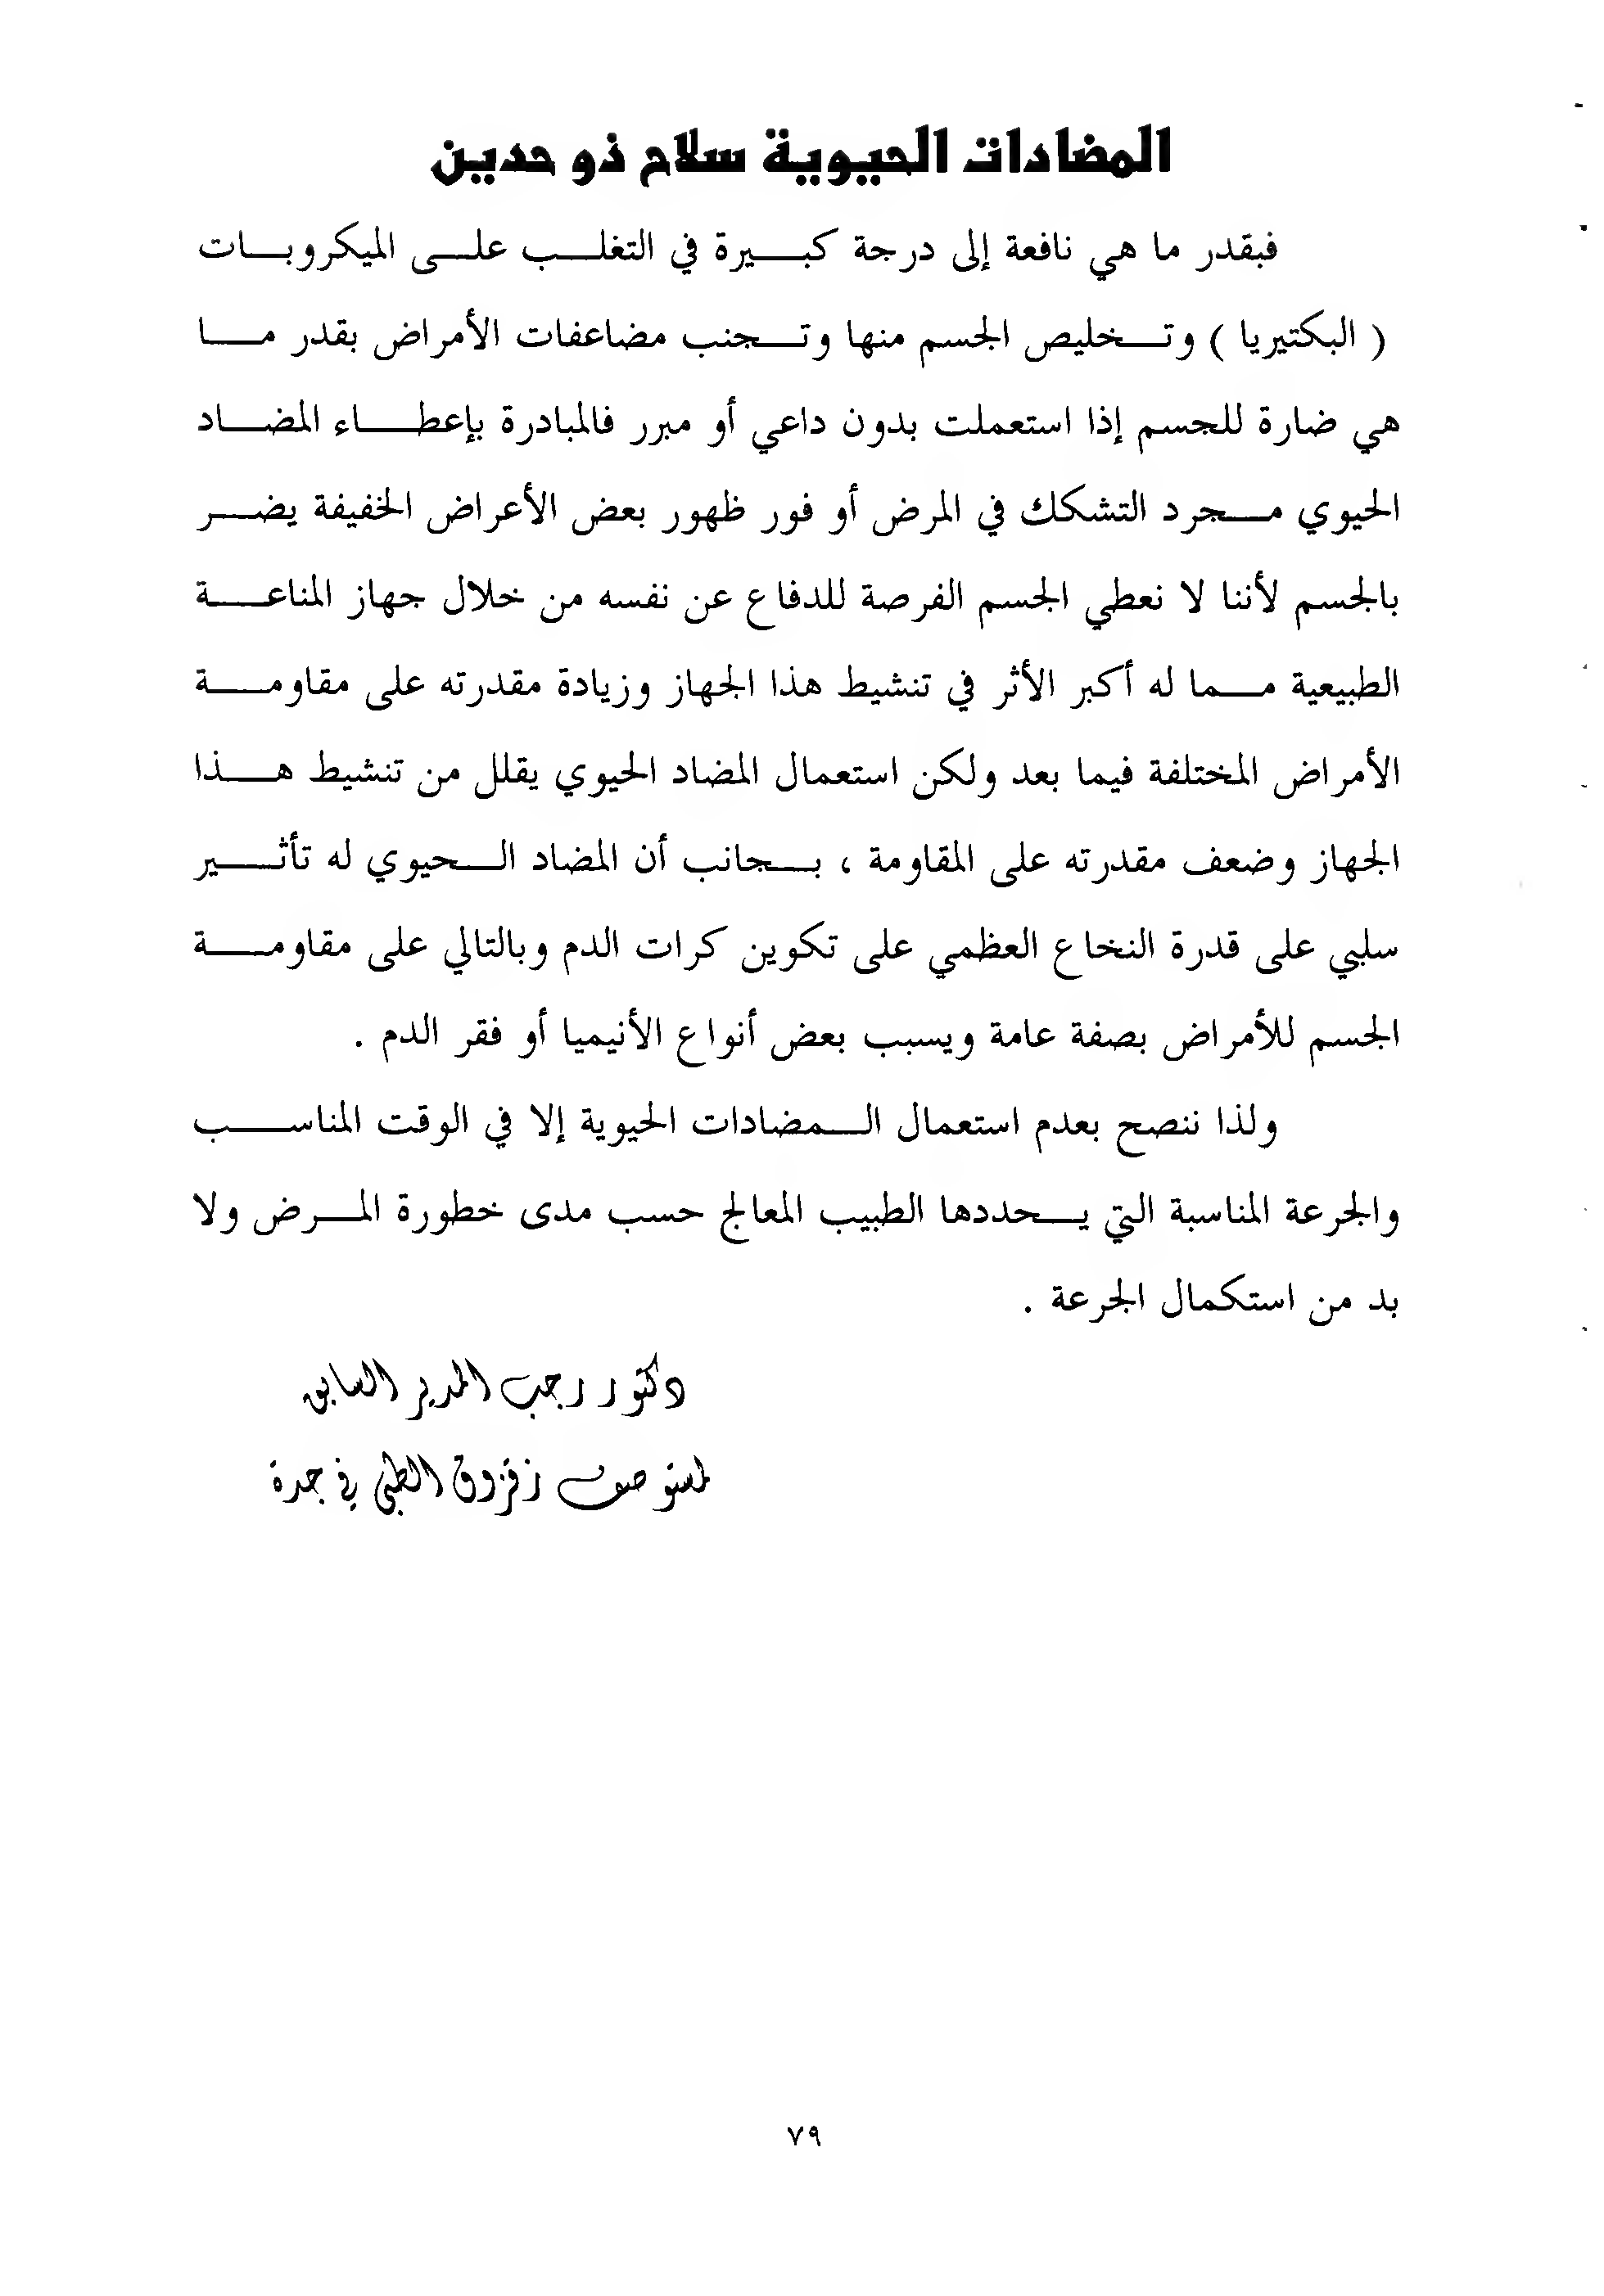 المضادات الحيوية سلاح ذو حدين
فبقدر ما هي نافعة إلى درجة كبيرة في التغلب على الميكروبات
( البكتيريا ) وتخليص الجسم منها وتجنب مضاعفات الأمراض بقدر ما
هي ضارة للجسم إذا استعملت بدون داعي أو مبرر فالمبادرة بإعطاء المضاد
الحيوي مجرد التشكك في المرض أو فور ظهور بعض الأعراض الخفيفة يضر
بالجسم لأننا لا نعطي الجسم الفرصة للدفاع عن نفسه من خلال جهاز المناعة
الطبيعية مما له أكبر الأثر في تنشيط هذا الجهاز وزيادة مقدرته على مقاومة
الأمراض المختلفة فيما بعد ولكن استعمال المضاد الحيوي يقلل من تنشيط هذا
الجهاز وضعف مقدرته على المقاومة ، بجانب أن المضاد الحيوي له تأثير
سلبي على قدرة النخاع العظمي على تكوين كرات الدم وبالتالي على مقاومة
الجسم للأمراض بصفة عامة ويسبب بعض أنواع الأنيميا أو فقر الدم .
ولذا ننصح بعدم استعمال المضادات الحيوية إلا في الوقت المناسب
والجرعة المناسبة التي يحددها الطبيب المعالج حسب مدى خطورة المرض ولا
بد من استكمال الجرعة .
دكتور رجب المدير السابق
لمستوصف زقزوق الطبي في جدة
٧٩